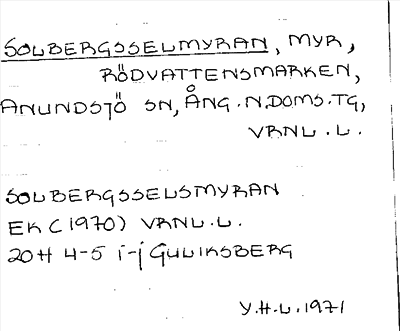 SOLBERGSSELMYRAN, MYR,
RÖDVATTENSMARKEN,
ANUNDSJÖ SN, ÅNG.N.DOMS.TG,
VRNL.L.
SOLBERGSSELSMYRAN
EK (1970) VRNL.L.
20H 4-5 i-j GULIKSBERG
Y.H.L. 1971